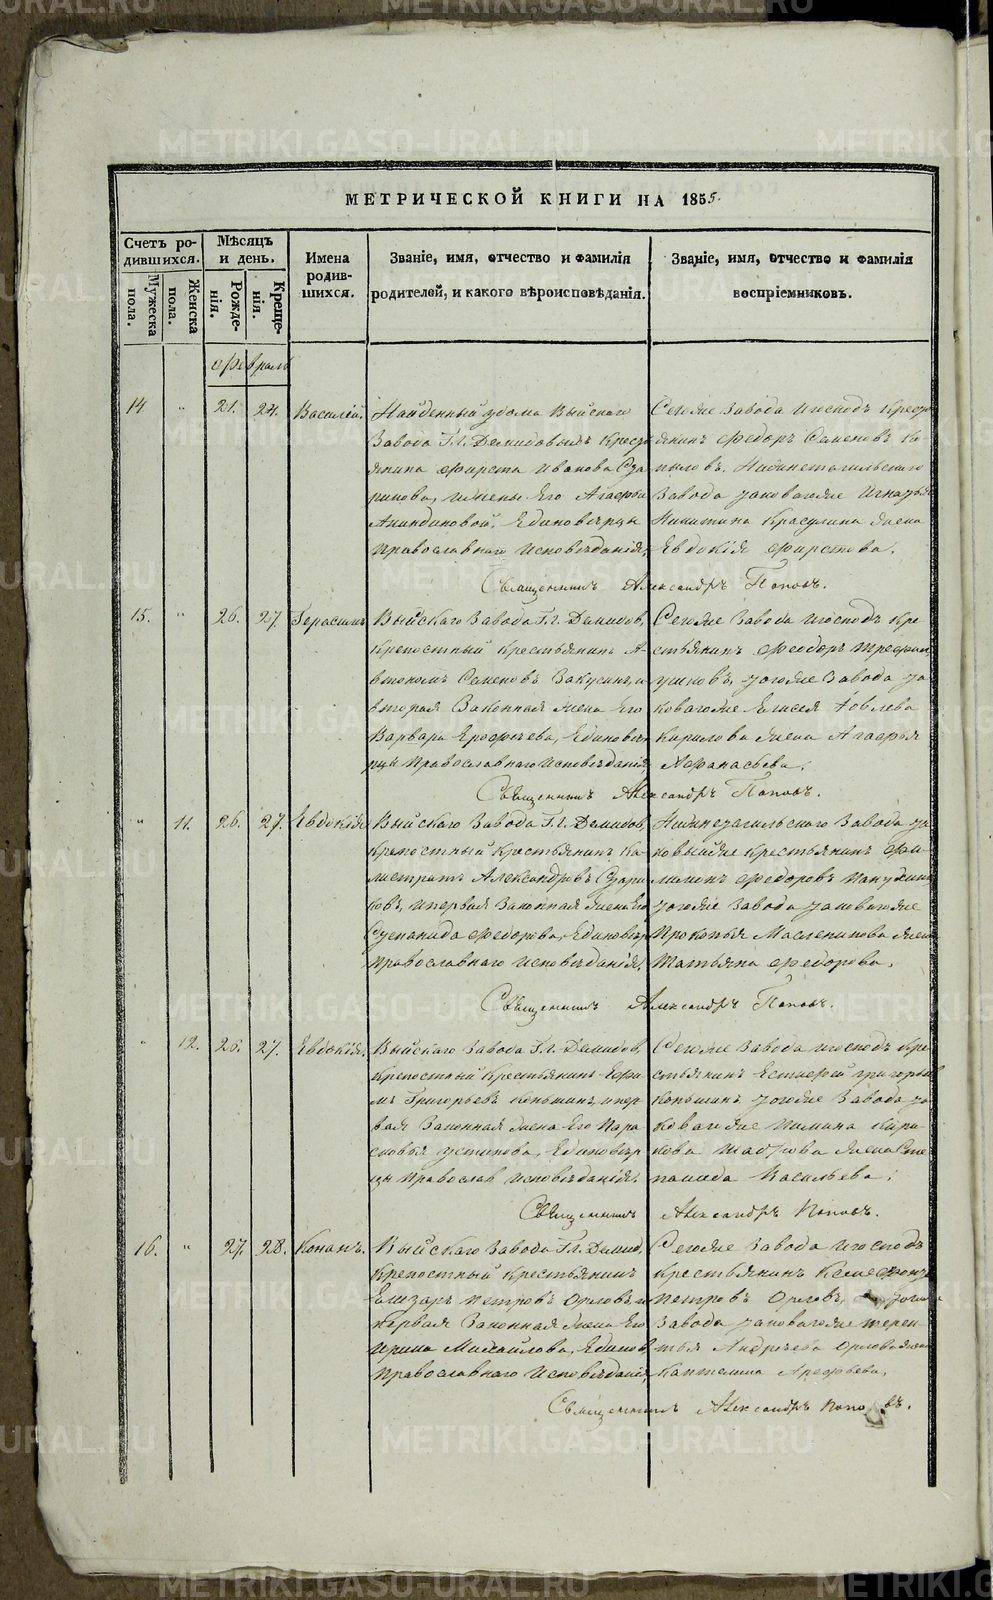 МЕТРИЧЕСКОЙ КНИГИ НА 1855.
Счетъ родившихся.
Мужеска пола.
Женска пола.
Мѣсяцъ и день.
Рожденія.
Крещенія.
Имена родившихся.
Званіе, имя, отчество и фамилія
родителей, и какого вѣроисповѣданія.
Званіе, имя, отчество и фамилія
воспріемниковъ.
февраль
14 " 21. 24. Василій.
Найденный у дома Выйскаго
Завода Гг. Демидовыхъ Кресть
янина Фирста Иванова
его Агафьи
Единовѣрцы
Православнаго Исповѣданія,
Сегоже Завода Игоспод Кресть
янинъ Федоръ Семеновъ Ко
пыловъ, Нижнетагильскаго
Завода Игнатья
Никитина Красулина жена
Евдокія Фирстова.
Священникъ Александръ Поповъ.
15. " 26. 27. Герасимъ
Выйскаго Завода Гг. Демидов,
Крепостный Крестьянинъ А
втономъ Семеновъ Закусинъ, и
вторая Законная жена Его
Варвара Ерофеева, Единовѣр
цы Православнаго Исповѣданія,
Сегоже Завода Игосподъ Кре
стьянинъ Феодоръ
Завода
Елисея Іовлева
Кирилова жена Агафья
Афанасьева.
Священникъ Александръ Поповъ.
" 11. 26. 27. Евдокія
Выйскаго Завода Гг. Демидов,
Крепостный Крестьянинъ Ка
листратъ Александровъ Стари
ковъ, и первая Законная жена Его
Степанида Федорова, Единовѣр
Православнаго Исповѣданія.
Нижнетагильскаго Завода
Крестьянинъ Фи
Федоровъ
Завода
Прокопья Масленикова жена
Татьяна Федорова.
Священникъ Александръ Поповъ.
" 12. 26. 27. Евдокія.
Выйскаго Завода Гг. Демидов,
Крепостный Крестьянинъ Ефи
мъ Григорьевъ Коньшинъ, и пер
вая Законная жена Его Пара
сковья Устинова, Единовѣр
цы Православ Исповѣданія.
Сегоже Завода Игосподъ Кре
стьянинъ Естифей Григорьевъ
Коньшинъ Завода
Пимина Кири
лова жена Сте
панида Васильева.
Священникъ Александръ Поповъ.
16. " 27. 28. Кононъ.
Выйскаго Завода Гг. Демид,
Крепостный Крестьянинъ
Елизаръ Петровъ Орловъ, и
первая Законная жена Его
Ирина Михайлова, Единов
Православнаго Исповѣданія,
Сегоже Завода Игосподъ
Крестьянинъ Ксенофонтъ
Петровъ Орловъ,
Завода Терен
тья Андреева Орлова жена
Капитолина Арефьева.
Священникъ Александръ Поповъ.
METRIKI.GASO-URAL.RU